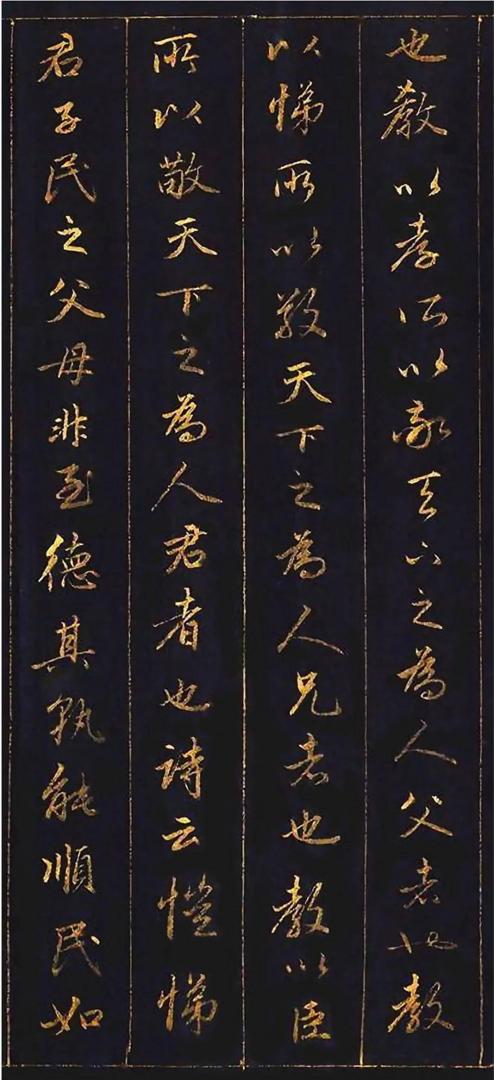 也教以孝所以敬天下之為人父者也教
以悌所以敬天下之為人兄者也教以臣
所以敬天下之為人君者也詩云愷悌
君子民之父母非至德其孰能順民如